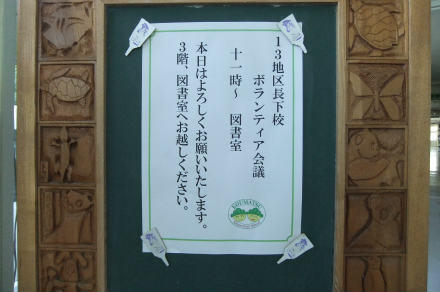 13地区長下校
ボランティア会議
十一時~ 図書室
本日はよろしくお願いいたします。
3階、図書室へお越しください。